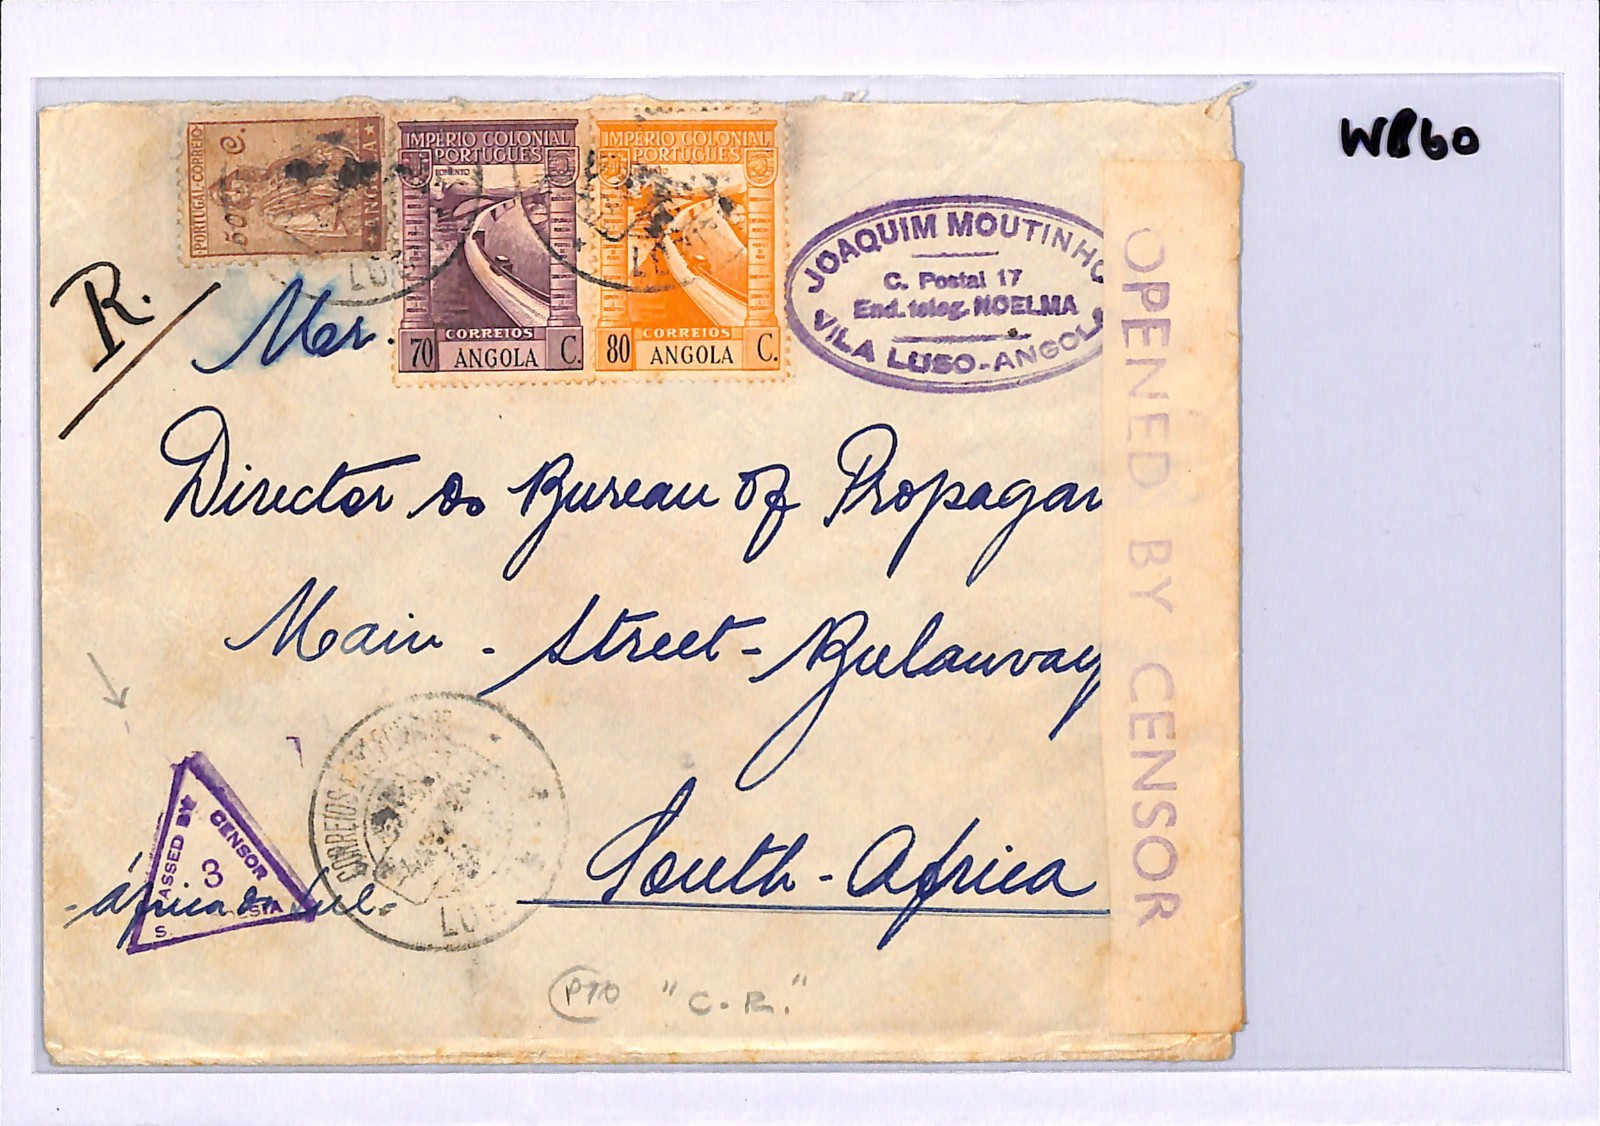 WB60
PORTUGAL-CORREIO
60 C.
IMPÉRIO COLONIAL
PORTUGUÊS
FOMENTO
CORREIOS
70 ANGOLA C.
IMPÉRIO COLONIAL
PORTUGUÊS
CORREIOS
80 ANGOLA C.
JOAQUIM MOUTINHO
C. Postal 17
End. teleg. NOELMA
VILA LUSO-ANGOLA
R.
Director do Bureau of Propagan
Main - Street - Bulauvay
South - Africa
- África do Sul -
PASSED BY CENSOR
3
S.
CORREIOS
OPENED BY CENSOR
PTO "C.R."